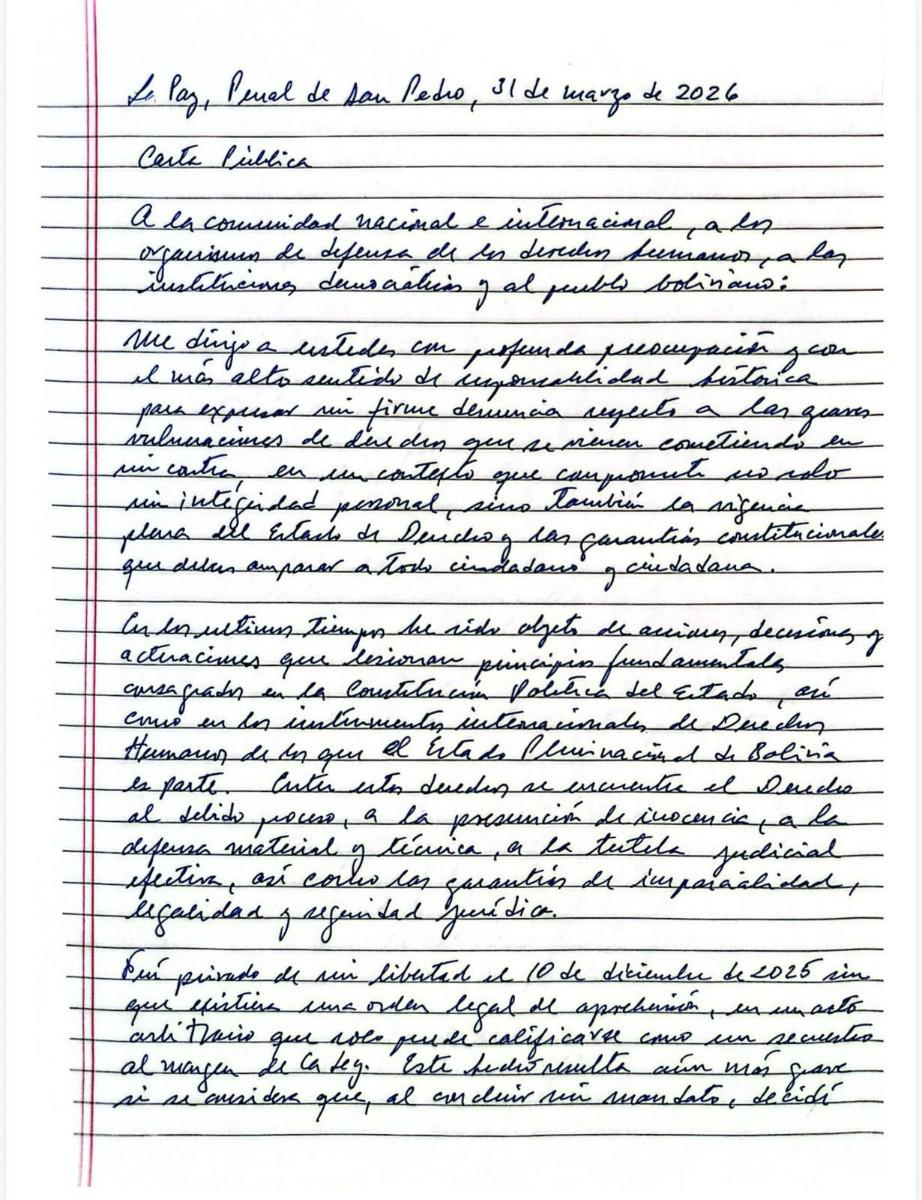 La Paz, Penal de San Pedro, 31 de marzo de 2026
Carta Pública
A la comunidad nacional e internacional, a los
organismos de defensa de los derechos humanos, a las
instituciones democráticas y al pueblo boliviano:
Me dirijo a ustedes con profunda preocupación y con
el más alto sentido de responsabilidad histórica
para expresar mi firme denuncia respecto a las graves
vulneraciones de derechos que se vienen cometiendo en
mi contra, en un contexto que compromete no solo
mi integridad personal, sino también la vigencia
plena del Estado de Derecho y las garantías constitucionales
que deben amparar a todo ciudadano y ciudadana.
En los ultimos tiempos he sido objeto de acciones, decisiones y
actuaciones que lesionan principios fundamentales
consagrados en la Constitución Política del Estado, así
como en los instrumentos internacionales de Derechos
Humanos de los que el Estado Plurinacional de Bolivia
es parte. Entre estos derechos se encuentra el Derecho
al debido proceso, a la presunción de inocencia, a la
defensa material y técnica, a la tutela judicial
efectiva, así como las garantías de imparcialidad,
legalidad y seguridad jurídica.
Fuí privado de mi libertad el 10 de diciembre de 2025 sin
que existiera una orden legal de aprehensión, en un acto
arbitrario que solo puede calificarse como un secuestro
al margen de la Ley. Este hecho resulta aún más grave
si se considera que, al concluir mi mandato, decidí